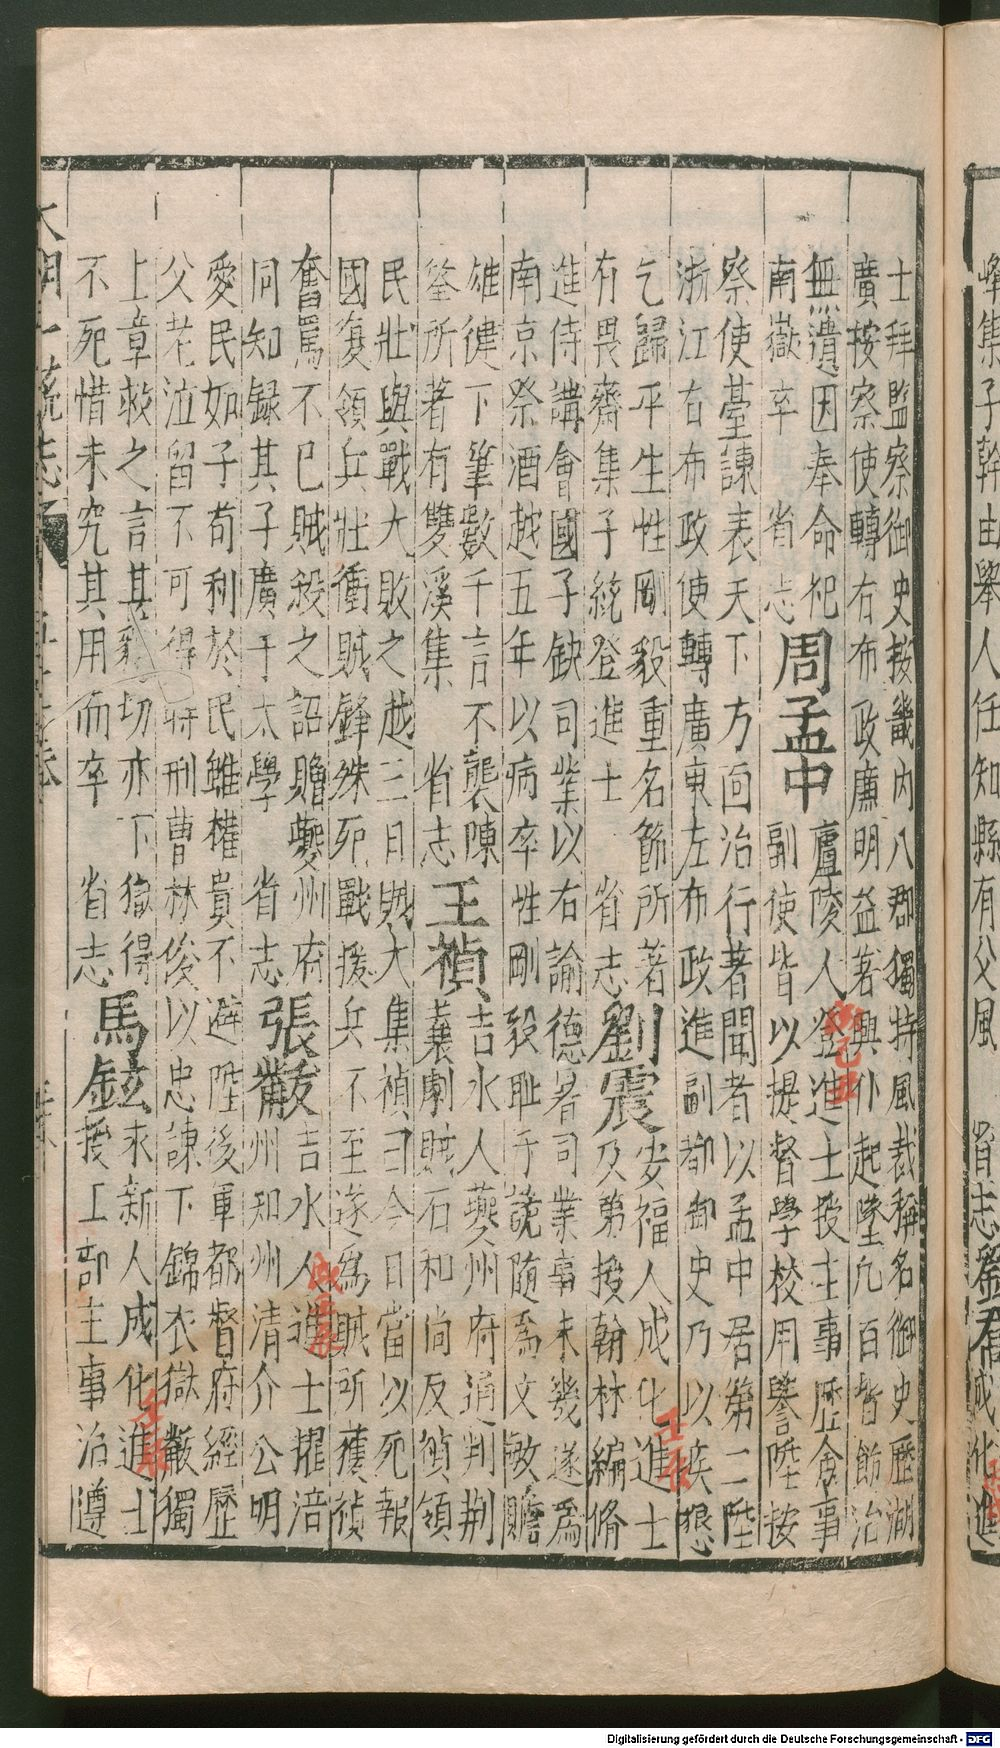 峰集子幹由舉人任知縣有父風 省志 成化進
士拜監察御史按畿內八郡獨持風裁稱名御史歷湖
廣按察使轉右布政廉明益著興仆起墜凡百皆飭治
無遺因奉命祀
南嶽卒 省志
周孟中
廬陵人登進士授主事歷僉事
副使皆以提督學校用譽陞按
察使臺諫表天下方面治行著聞者以孟中居第二陞
浙江右布政使轉廣東左布政進副都御史乃以疾懇
乞歸平生性剛毅重名節所著
有畏齋集子統登進士 省志
劉震
安福人成化進士
及第授翰林編脩
進侍講會國子缺司業以右諭德署司業事未幾遂為
南京祭酒越五年以病卒性剛毅耻于詭随為文敏贍
雄健下筆數千言不襲陳
筌所著有雙溪集 省志
王禎
吉水人夔州府通判荆
襄劇賊石和尚反禎領
民壯與戰大敗之越三日賊大集禎曰今日當以死報
國復領兵壯衝賊鋒殊死戰援兵不至遂為賊所獲禎
奮罵不已賊殺之詔贈夔州府
同知録其子廣于太學 省志
張黻
吉水人進士擢涪
州知州清介公明
愛民如子苟利於民雖權貴不避陞後軍都督府經歷
父老泣留不可得時刑曹林俊以忠諫下錦衣獄黻獨
上章救之言甚切亦下獄得
不死惜未究其用而卒 省志
馬鉉
永新人成化進士
授工部主事治遵
己丑
壬辰
壬辰
大明一統志
Digitalisierung gefördert durch die Deutsche Forschungsgemeinschaft - DFG